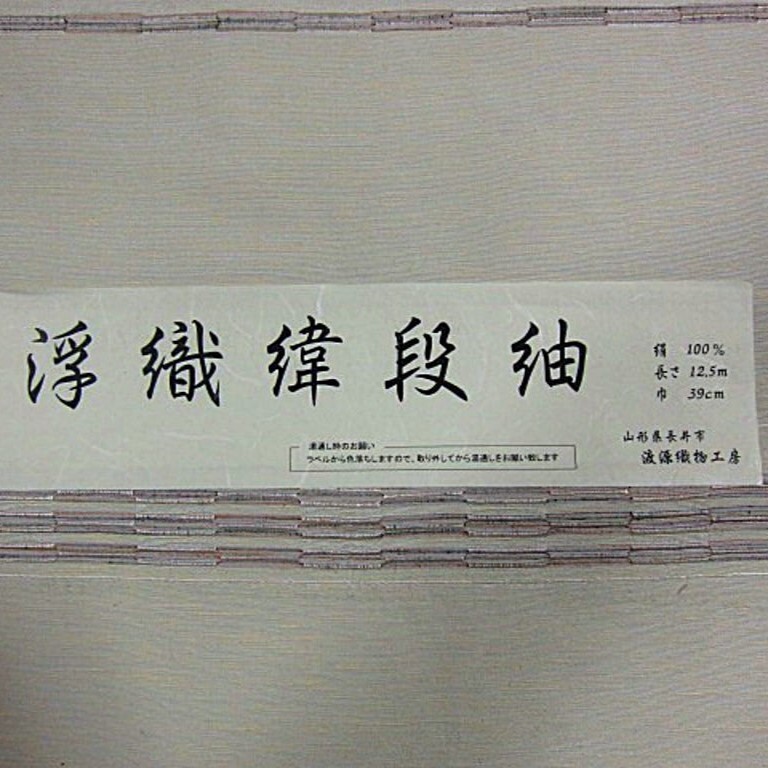 浮織緯段紬
絹 100%
長さ 12.5m
巾 39cm
山形県長井市
渡源織物工房
湯通し時のお願い
ラベルから色落ちしますので、取り外してから湯通しをお願い致します